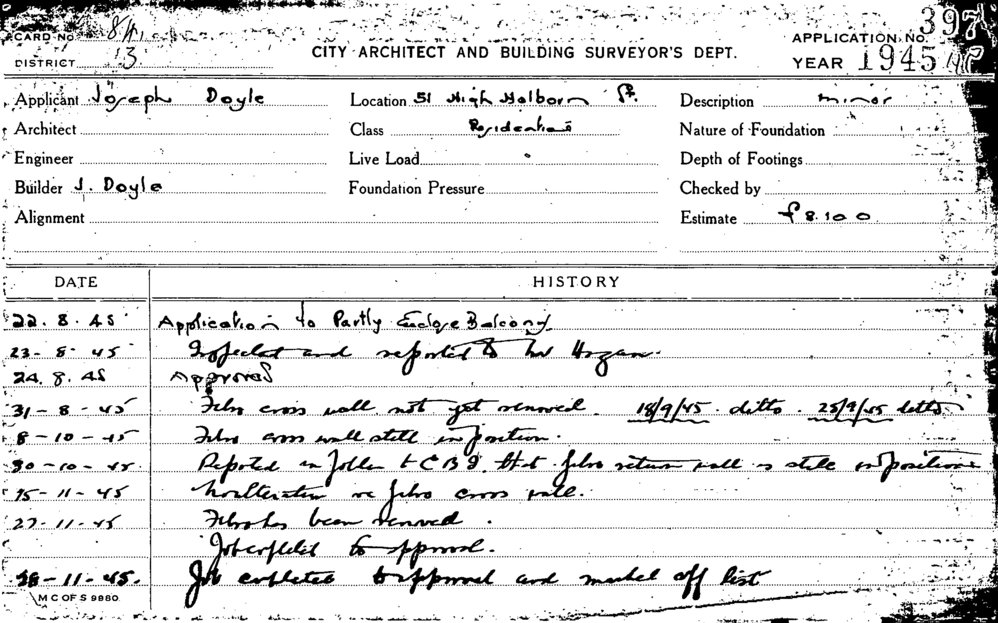 CARD NO
DISTRICT 13
CITY ARCHITECT AND BUILDING SURVEYOR'S DEPT.
APPLICATION NO. 397
YEAR 1945
Applicant Joseph Doyle
Location 51 High Holborn St.
Description minor
Architect
Class Residential
Nature of Foundation
Engineer
Live Load
Depth of Footings
Builder J. Doyle
Foundation Pressure
Checked by
Alignment
Estimate £8.10.0
DATE HISTORY
22. 8. 45 Application to Partly Enclose Balcony
23- 8- 45 Inspected and reported to Mr Hogan.
24. 8. 45 Approved
31-8-45 Fibro cross wall not yet removed. 18/9/45 ditto. 25/9/45 ditto
8-10-45 Fibro cross wall still in position.
30-10-45 Reported in folder to C B I. that fibro return wall is still in position
15-11-45 No alteration re fibro cross wall.
27-11-45 Fibro has been removed.
Job completed to approval.
28-11-45. Job completed to approval and marked off list
M C OF S 9880